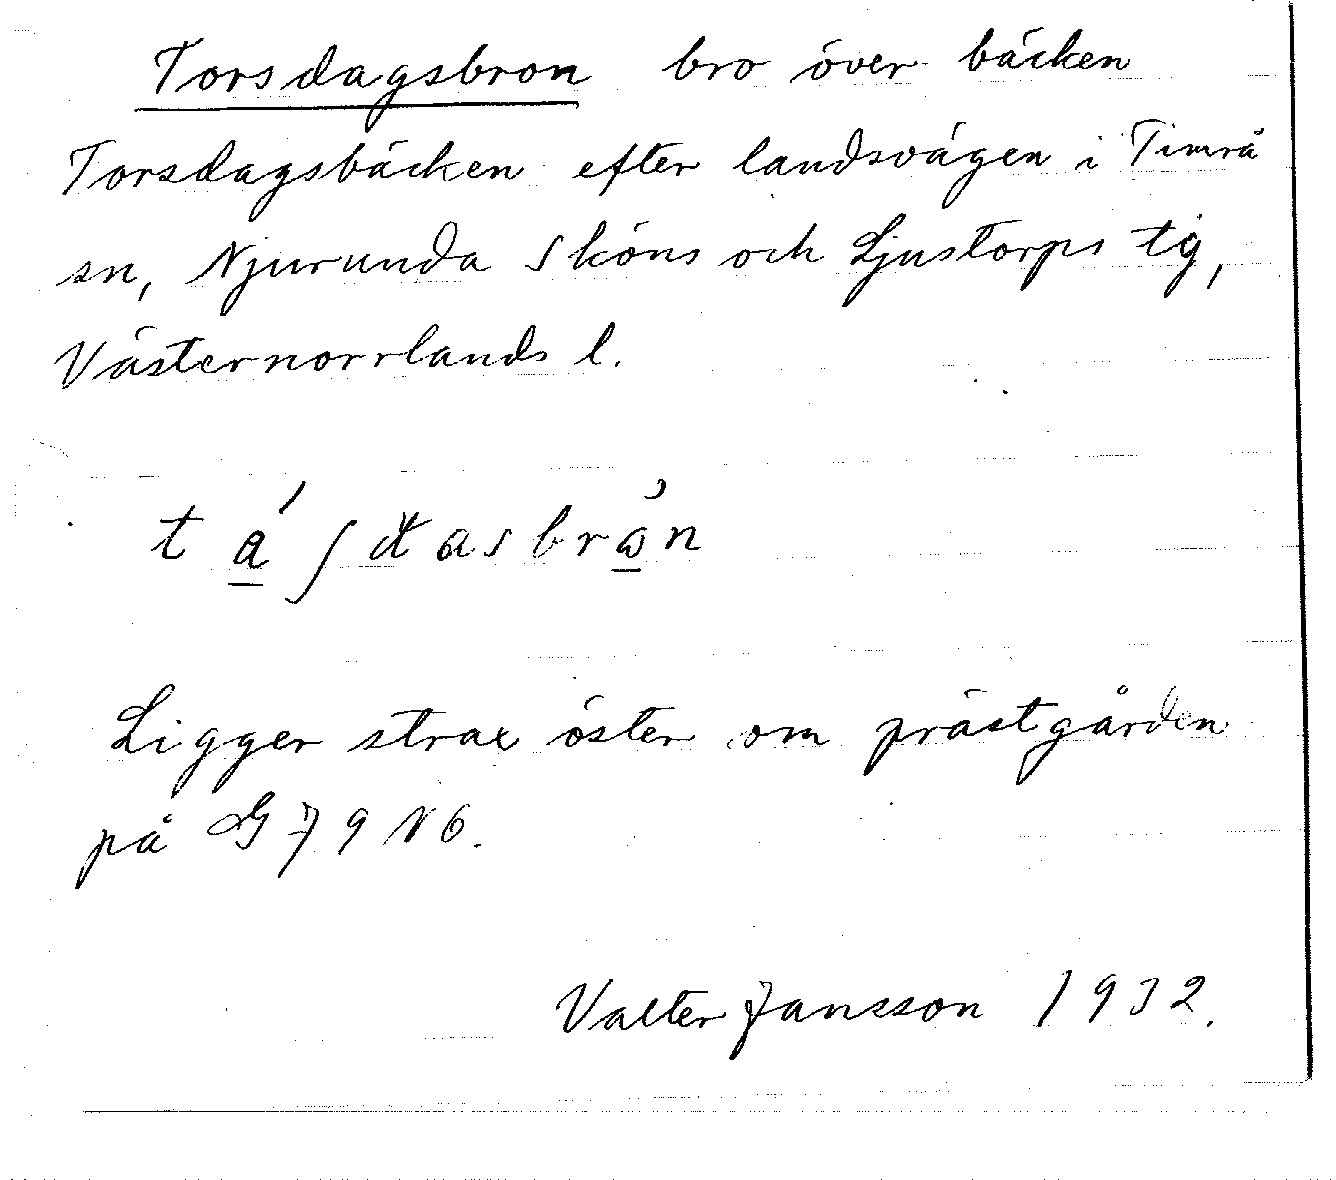 Torsdagsbron bro över bäcken
Torsdagsbäcken efter landsvägen i Timrå
sn, Njurunda Sköns och Ljustorps tg,
Västernorrlands l.
Ligger strax öster om prästgården
på G 79 N6.
Valter Jansson 1932.